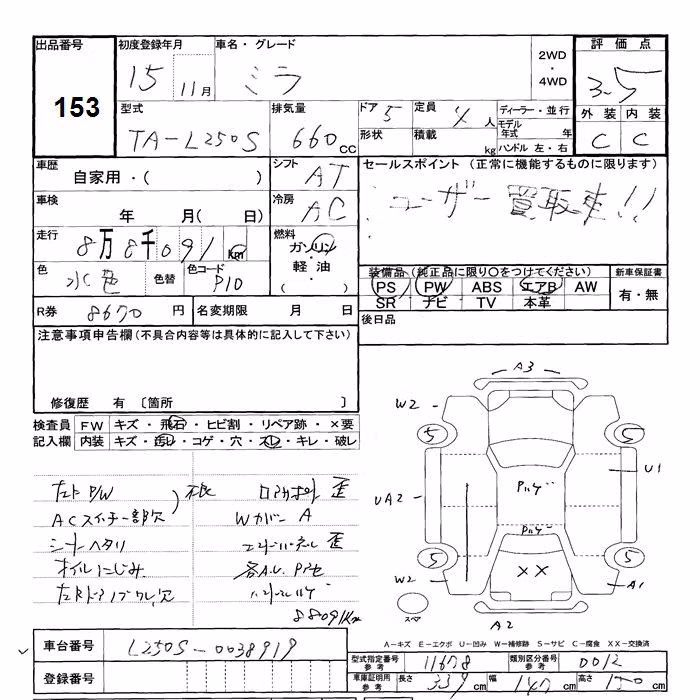 出品番号
153
初度登録年月
15 11月
車名・グレード
ミラ
2WD
・
4WD
評価点
3.5
外装 内装
C C
型式
TA-L250S
排気量
660 CC
ドア 5
定員 4人
形状
積載 kg
ディーラー・並行
モデル年式 年
ハンドル 左・右
車歴
自家用・( )
シフト AT
セールスポイント (正常に機能するものに限ります)
ユーザー買取車!!
車検
年 月( 日)
冷房 AC
走行
8万8千091km
燃料
ガソリン
・
軽油
・
( )
色 水色
色替
色コード P10
装備品 (純正品に限り○をつけてください)
PS PW ABS エアB AW
SR ナビ TV 本革
新車保証書
有・無
R券 8670円
名変期限 月 日
後日品
注意事項申告欄 (不具合内容等は具体的に記入して下さい)
修復歴 有 〔箇所 〕
検査員記入欄
FW キズ・飛石・ヒビ割・リペア跡・×要
内装 キズ・汚レ・コゲ・穴・スレ・キレ・破レ
左ドP/W
不良
ACスイッチ一部欠
WカバーA
シートヘタリ
オイルにじみ
88091Km
A3
W2
5 5
U1
UA2
W2
5 5
A1
××
A2
スペア
A-キズ E-エクボ U-凹み W-補修跡 S-サビ C-腐食 XX-交換済
車台番号 L250S-0038919
登録番号
型式指定番号 参考 11678
類別区分番号 参考 0012
車庫証明用 参考 長さ 339cm 幅 147cm 高さ 150cm